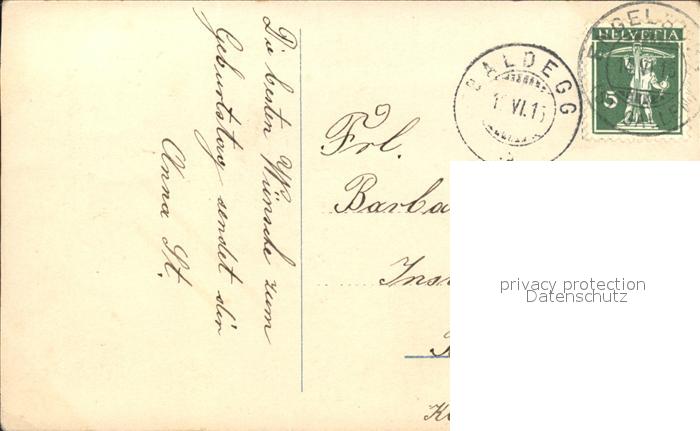 Die besten Wünsche zum
Geburtstag sendet dir
Anna St.
BALDEGG
VI.1
HELVETIA
5
Frl.
Barba
Ins
privacy protection
Datenschutz